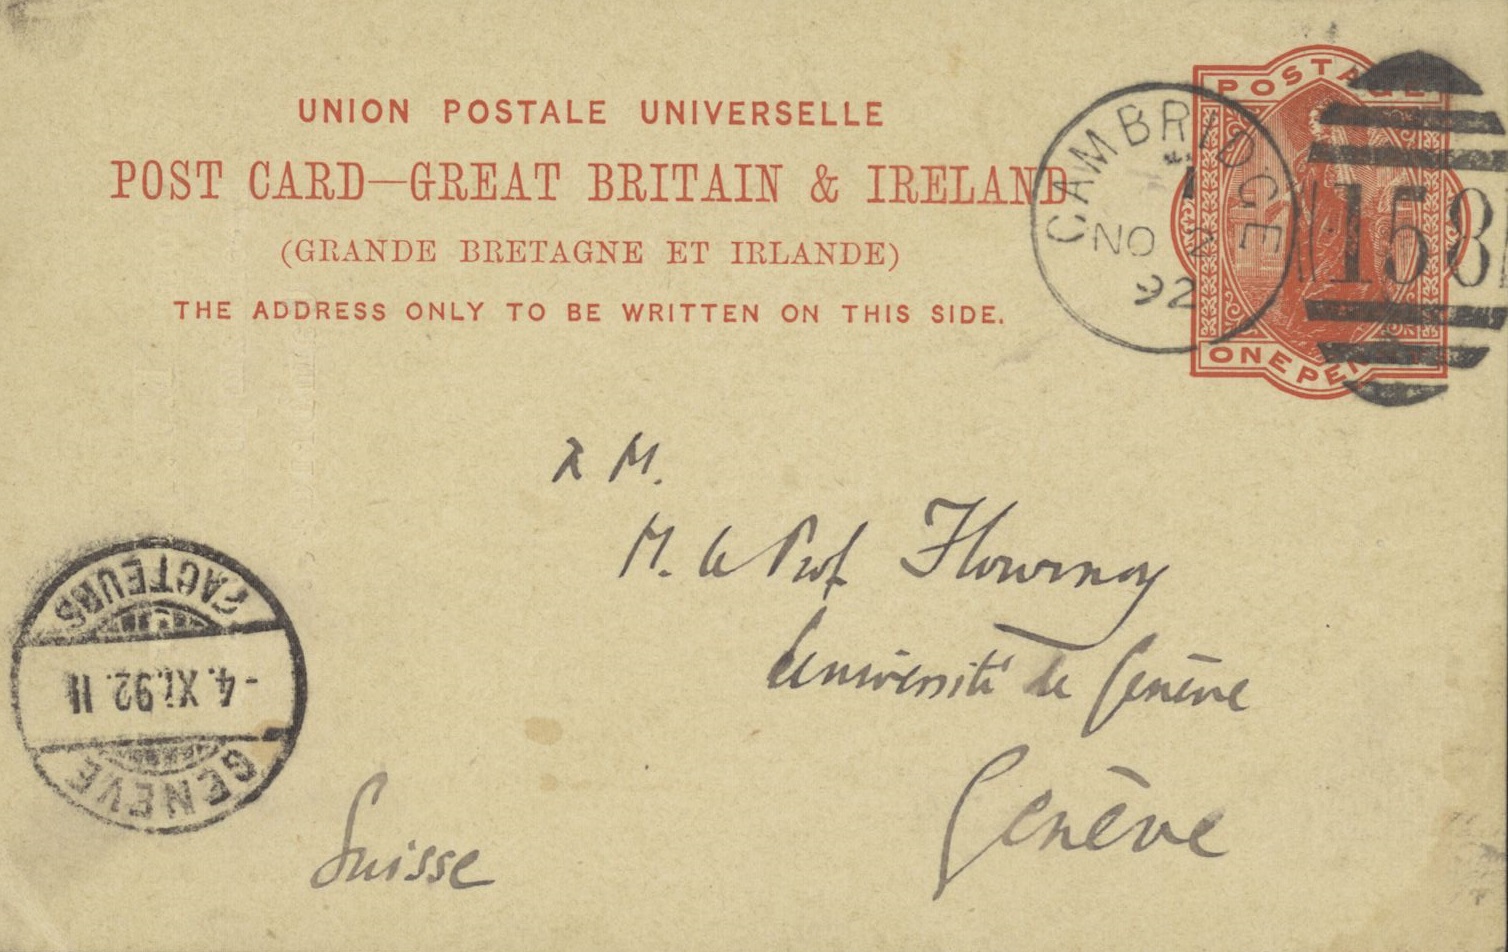 UNION POSTALE UNIVERSELLE
POST CARD—GREAT BRITAIN & IRELAND
(GRANDE BRETAGNE ET IRLANDE)
THE ADDRESS ONLY TO BE WRITTEN ON THIS SIDE.
POSTAGE
ONE PEN
CAMBRIDGE
1
NO 2
92
158
M.
M. le Prof Flournoy
Université de Genève
Genève
Suisse
GENEVE
-4.XI.92.11
FACTEURS